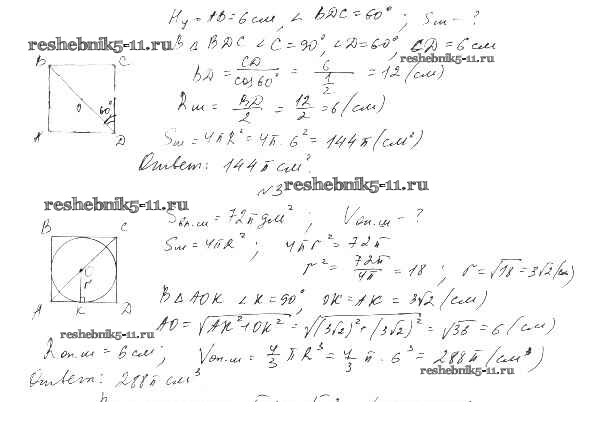 Hy = AB = 6 см, ∠ BDC = 60°; Sш - ?
reshebnik5-11.ru
В Δ BDC ∠C = 90°, ∠D = 60°, CD = 6 см
reshebnik5-11.ru
BD = CD / cos 60° = 6 / (1/2) = 12 (см)
Rш = BD / 2 = 12 / 2 = 6 (см)
Sш = 4πR² = 4π · 6² = 144π (см²)
Ответ: 144π см².
B C
O 60°
A D
N3
reshebnik5-11.ru
reshebnik5-11.ru
Sвп.ш = 72π дм²; Vоп.ш - ?
Sш = 4πR²; 4πr² = 72π
r² = 72π / 4π = 18; r = √18 = 3√2 (см)
B C
O
r
A K D
В Δ AOK ∠K = 90°, OK = AK = 3√2 (см)
AO = √(AK² + OK²) = √((3√2)² + (3√2)²) = √36 = 6 (см)
reshebnik5-11.ru
Rоп.ш = 6 см; Vоп.ш = 4/3 πR³ = 4/3 π · 6³ = 288π (см³)
reshebnik5-11.ru
Ответ: 288π см³